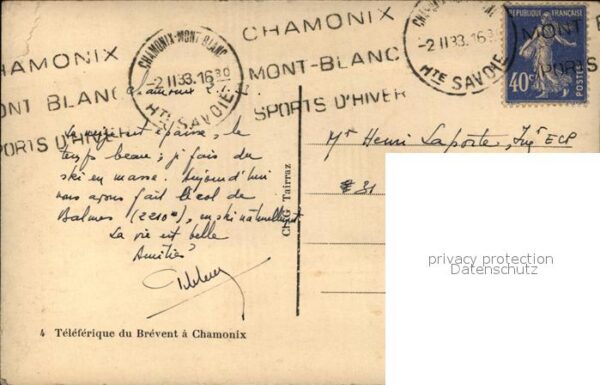 CHAMONIX
MONT-BLANC
SPORTS D'HIVER
CHAMONIX
MONT-BLANC
SPORTS D'HIVER
CHAMONIX-MONT-BLANC
-2 II 33.1630
HTE SAVOIE
-2 II 33.1630
HTE SAVOIE
MONT
SPORTS
REPUBLIQUE FRANÇAISE
40c
POSTES
Chamonix
La neige est épaisse, le
temps beau; j'fais du
ski en masse. Aujourd'hui
nous avons fait le col de
Balmes (2210m), en ski naturellement
La vie est belle
Amitiés
Mr Henri Laporte, Ingr ECP
Cl. G. Tairraz
4 Téléférique du Brévent à Chamonix
privacy protection
Datenschutz